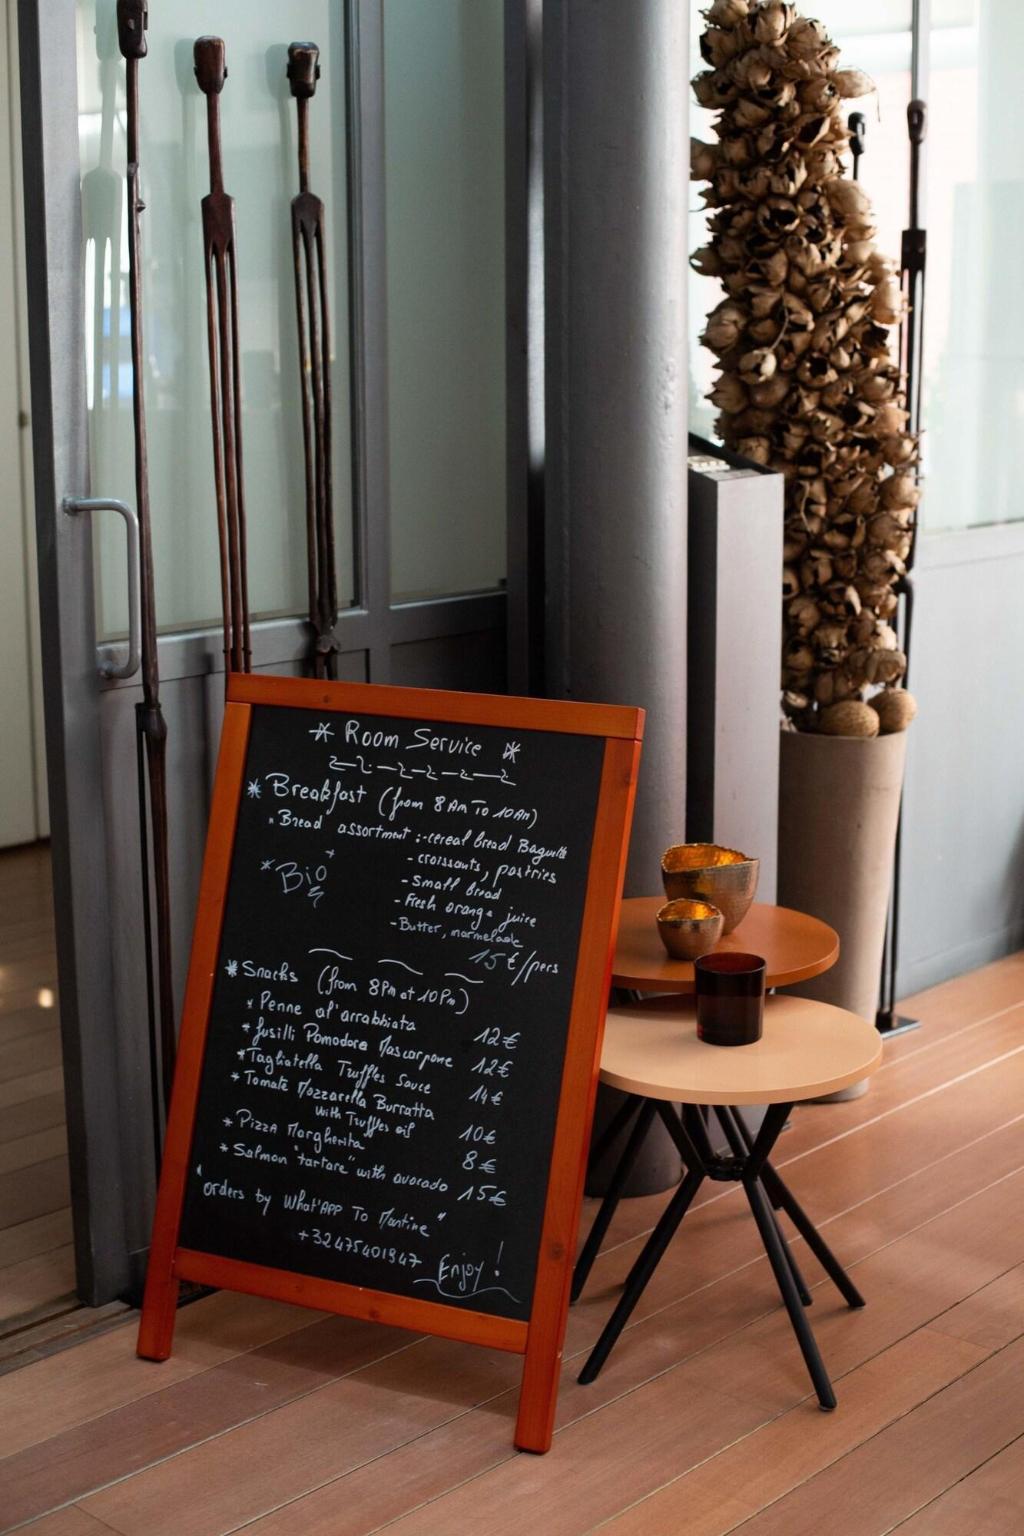 Room Service
Breakfast (from 8AM To 10AM)
Bread assortment :-cereal bread Baguette
- croissants, pastries
Bio
- Small bread
- Fresh orange juice
- Butter, marmelade
15€/pers
Snacks (from 8PM at 10PM)
* Penne al'arrabbiata 12€
* fusilli Pomodore Mascarpone 12€
* Tagliatella Truffles Sauce 14€
* Tomate Mozzarella Burratta
with Truffles oil 10€
* Pizza Margherita 8€
* Salmon "tartare" with avocado 15€
"orders by What'APP To Martine"
+32475401947
Enjoy !